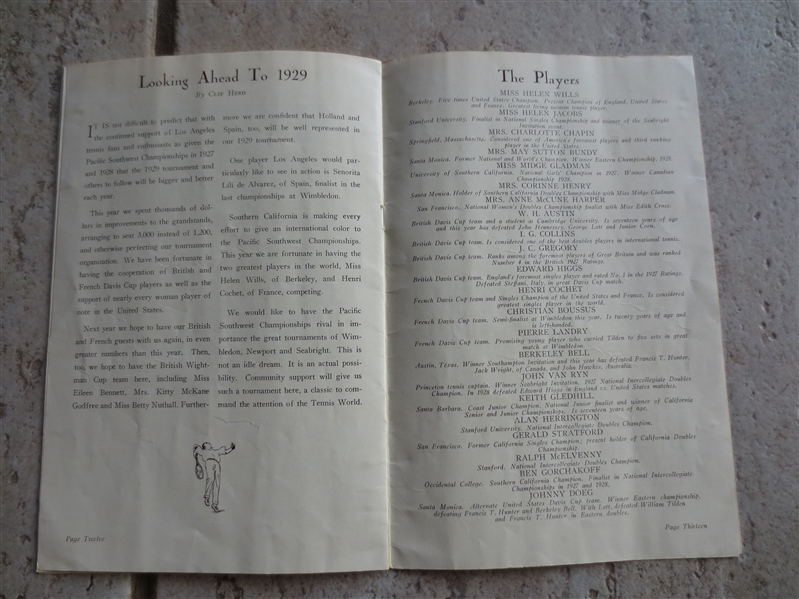 Looking Ahead To 1929
By Clif Herd
IT IS not difficult to predict that with
the continued support of Los Angeles
tennis fans and enthusiasts as given the
Pacific Southwest Championships in 1927
and 1928 that the 1929 tournament and
others to follow will be bigger and better
each year.
This year we spent thousands of dol-
lars in improvements to the grandstands,
arranging to seat 3,000 instead of 1,200,
and otherwise perfecting our tournament
organization. We have been fortunate in
having the cooperation of British and
French Davis Cup players as well as the
support of nearly every woman player of
note in the United States.
Next year we hope to have our British
and French guests with us again, in even
greater numbers than this year. Then,
too, we hope to have the British Wight-
man Cup team here, including Miss
Eileen Bennett, Mrs. Kitty McKane
Godfree and Miss Betty Nuthall. Further-
more we are confident that Holland and
Spain, too, will be well represented in
our 1929 tournament.
One player Los Angeles would par-
ticularly like to see in action is Senorita
Lili de Alvarez, of Spain, finalist in the
last championships at Wimbledon.
Southern California is making every
effort to give an international color to
the Pacific Southwest Championships.
This year we are fortunate in having the
two greatest players in the world, Miss
Helen Wills, of Berkeley, and Henri
Cochet, of France, competing.
We would like to have the Pacific
Southwest Championships rival in im-
portance the great tournaments of Wim-
bledon, Newport and Seabright. This is
not an idle dream. It is an actual possi-
bility. Community support will give us
such a tournament here, a classic to com-
mand the attention of the Tennis World.
Page Twelve
The Players
MISS HELEN WILLS
Berkeley. Five times United States Champion. Present Champion of England, United States
and France. Greatest living woman tennis player.
MISS HELEN JACOBS
Stanford University. Finalist in National Singles Championship and winner of the Seabright
Invitation event.
MRS. CHARLOTTE CHAPIN
Springfield, Massachusetts. Considered one of America's foremost players and third ranking
player in the United States.
MRS. MAY SUTTON BUNDY
Santa Monica. Former National and World's Champion. Winner Eastern Championship, 1928.
MISS MIDGE GLADMAN
University of Southern California. National Girls' Champion in 1927. Winner Canadian
Championship 1928.
MRS. CORINNE HENRY
Santa Monica. Holder of Southern California Doubles Championship with Miss Midge Gladman.
MRS. ANNE McCUNE HARPER
San Francisco. National Women's Doubles Championship finalist with Miss Edith Cross.
W. H. AUSTIN
British Davis Cup team and a student at Cambridge University. Is seventeen years of age
and this year has defeated John Hennessey, George Lott and Junior Coen.
I. G. COLLINS
British Davis Cup team. Is considered one of the best doubles players in international tennis.
J. C. GREGORY
British Davis Cup team. Ranks among the foremost players of Great Britain and was ranked
Number 4 in the British 1927 Ratings.
EDWARD HIGGS
British Davis Cup team. England's foremost singles player and rated No. 1 in the 1927 Ratings.
Defeated Stefani, Italy, in great Davis Cup match.
HENRI COCHET
French Davis Cup team and Singles Champion of the United States and France. Is considered
greatest singles player in the world.
CHRISTIAN BOUSSUS
French Davis Cup team. Semi-finalist at Wimbledon this year. Is twenty years of age and
is left-handed.
PIERRE LANDRY
French Davis Cup team. Promising young player who carried Tilden to five sets in great
match at Wimbledon.
BERKELEY BELL
Austin, Texas. Winner Southampton Invitation and this year has defeated Francis T. Hunter,
Jack Wright, of Canada, and John Hawkes, Australia.
JOHN VAN RYN
Princeton tennis captain. Winner Seabright Invitation. 1927 National Intercollegiate Doubles
Champion. In 1928 defeated Edward Higgs in England vs. United States matches.
KEITH GLEDHILL
Santa Barbara. Coast Junior Champion. National Junior finalist and winner of California
Senior and Junior Championships. Is seventeen years of age.
ALAN HERRINGTON
Stanford University. National Intercollegiate Doubles Champion.
GERALD STRATFORD
San Francisco. Former California Singles Champion; present holder of California Doubles
Championship.
RALPH McELVENNY
Stanford. National Intercollegiate Doubles Champion.
BEN GORCHAKOFF
Occidental College. Southern California Champion. Finalist in National Intercollegiate
Championships in 1927 and 1928.
JOHNNY DOEG
Santa Monica. Alternate United States Davis Cup team. Winner Eastern championship,
defeating Francis T. Hunter and Berkeley Bell. With Lott, defeated William Tilden
and Francis T. Hunter in Eastern doubles.
Page Thirteen